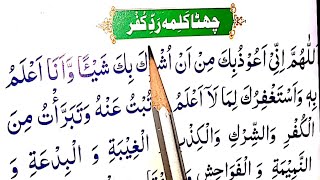 چھٹا کلمہ ردِّ کُفْر
اَللّٰهُمَّ اِنِّیْ اَعُوْذُ بِكَ مِنْ اَنْ اُشْرِكَ بِكَ شَیْـًٔا وَّاَنَا اَعْلَمُ
بِهٖ وَاَسْتَغْفِرُكَ لِمَا لَآ اَعْلَمُ تُبْتُ عَنْهُ وَتَبَرَّأْتُ مِنَ
الْكُفْرِ وَالشِّرْكِ وَالْكِذْبِ الْغِیْبَةِ وَ الْبِدْعَةِ وَ
النَّمِیْمَةِ وَ الْفَوَاحِشِ